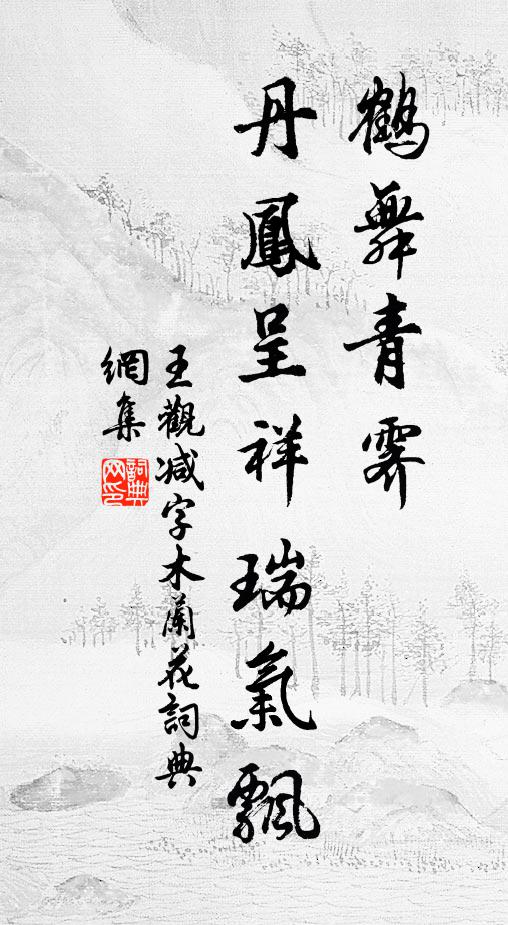 鶴舞青霽
丹鳳呈祥瑞氣飄
王觀減字木蘭花詞典
網集
詞典網印